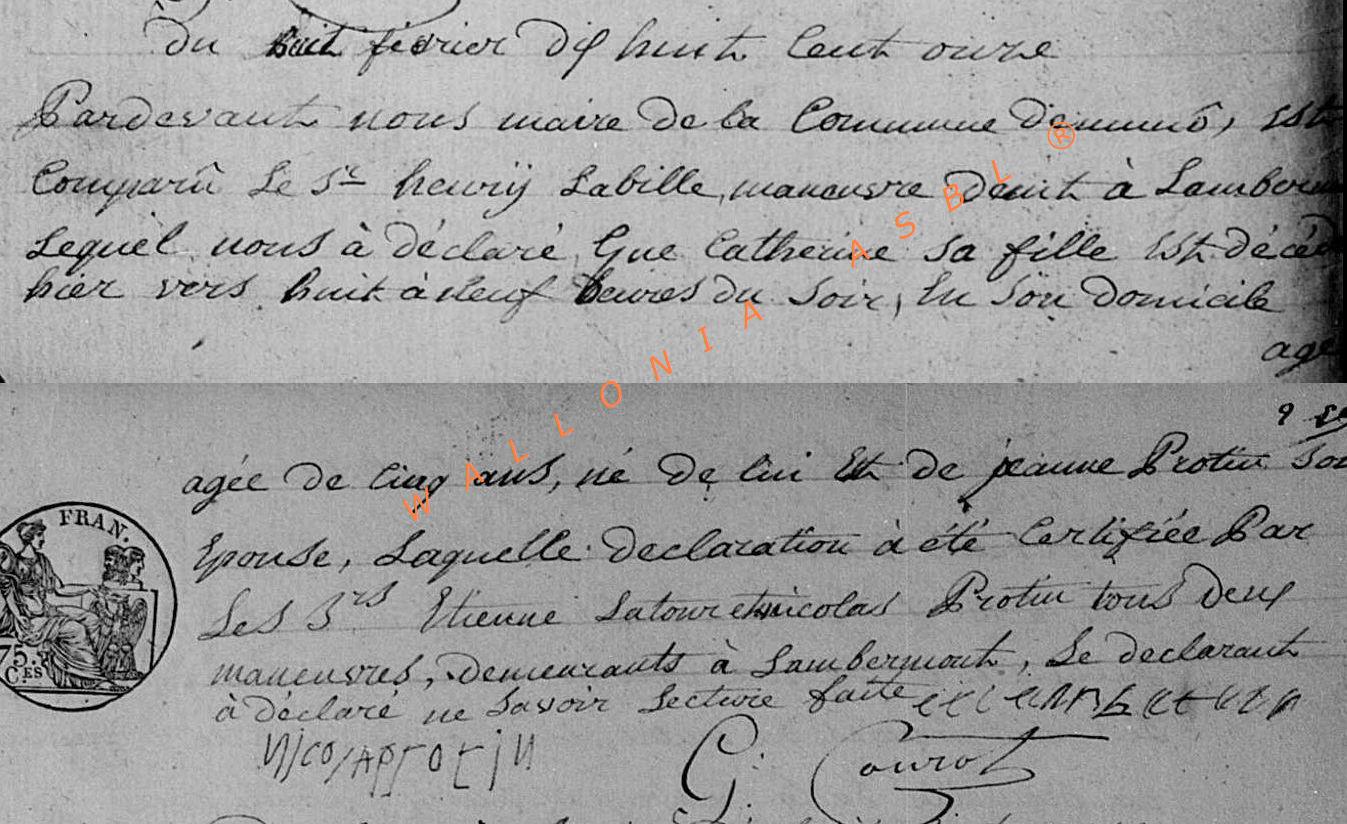 Du huit février dix huit Cent onze
Pardevant nous maire de la Commune de munô, Est
Comparû Le Sr henrÿ Labille, maneuvre demt à Lambermont
Lequel nous à déclaré Que Catherine sa fille Est décéd
hier vers huit à neuf heures du Soir, En Son Domicile
agé
WALLONIA ASBL ®
9
agée de Cinq ans, né de lui Et de jeanne Protin Son
Epouse, Laquelle declaration à été Certifiée Par
FRAN.
Les Srs Etienne Latour et nicolas Protin tous deux
75.
CES
maneuvres, demeurants à Lambermont, Le declarant
à déclaré ne Savoir Lecture faite
nicolas protin
G. Courot